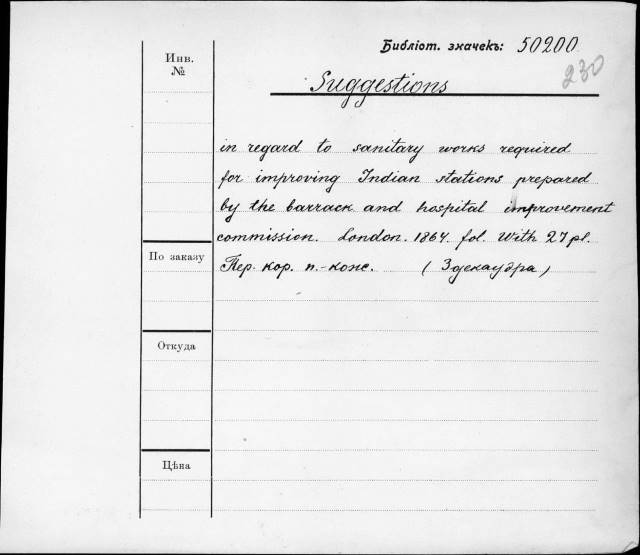 Библіот. значекъ: 50200
230
Инв.
№
Suggestions
in regard to sanitary works required
for improving Indian stations prepared
by the barrack and hospital improvement
commission. London. 1864. fol. With 27 pl.
По заказу
Пер. кор. п.-кож. (Здекаудра)
Откуда
Цѣна